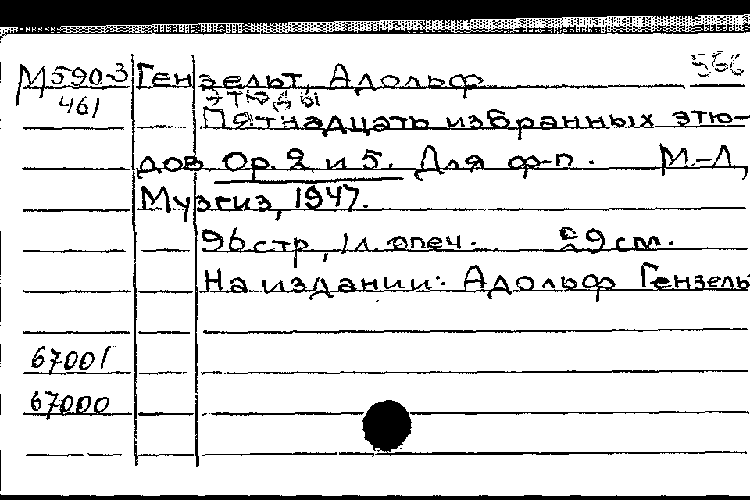 566
М590-3 Гензельт, Адольф
461 этюды
Пятнадцать избранных этю-
дов Op. 2 и 5. Для ф-п. М.-Л,
Музгиз, 1947.
96 стр, 1 л. опеч. 29 см.
На издании: Адольф Гензель
67001
67000